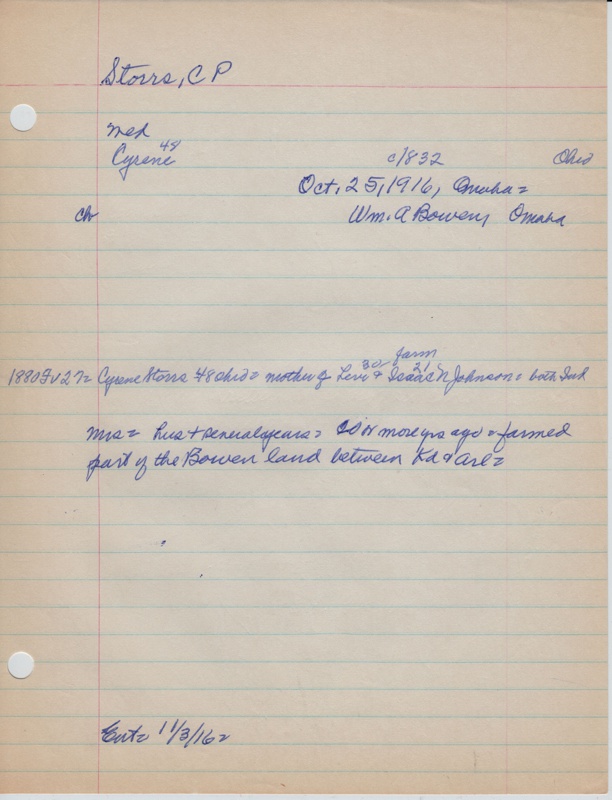 Storrs, C P
med
Cyrene 48 c1832 Ohio
Oct, 25, 1916, Omaha =
ch Wm. A Bowen, Omaha
30 farm 21
1880 Fv 27= Cyrene Storrs 48 Ohio = mother of Levi & Isaac N Johnson = both Ind
Mrs = several years = 20 or more yrs ago = farmed
part of the Bowen land between Kd & Arl =
Ent = 11/3/16 =